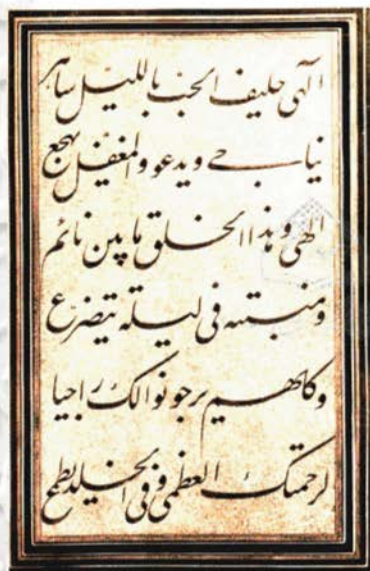 الهی حلیف الحب باللیل ساهر
یناجی ویدعو والمغفل یهجع
الهی وهذا الخلق ما بین نائم
ومنتبه فی لیله یتضرع
وکلهم یرجو نوالک راجیا
لرحمتک العظمی وفی الخلد یطمع